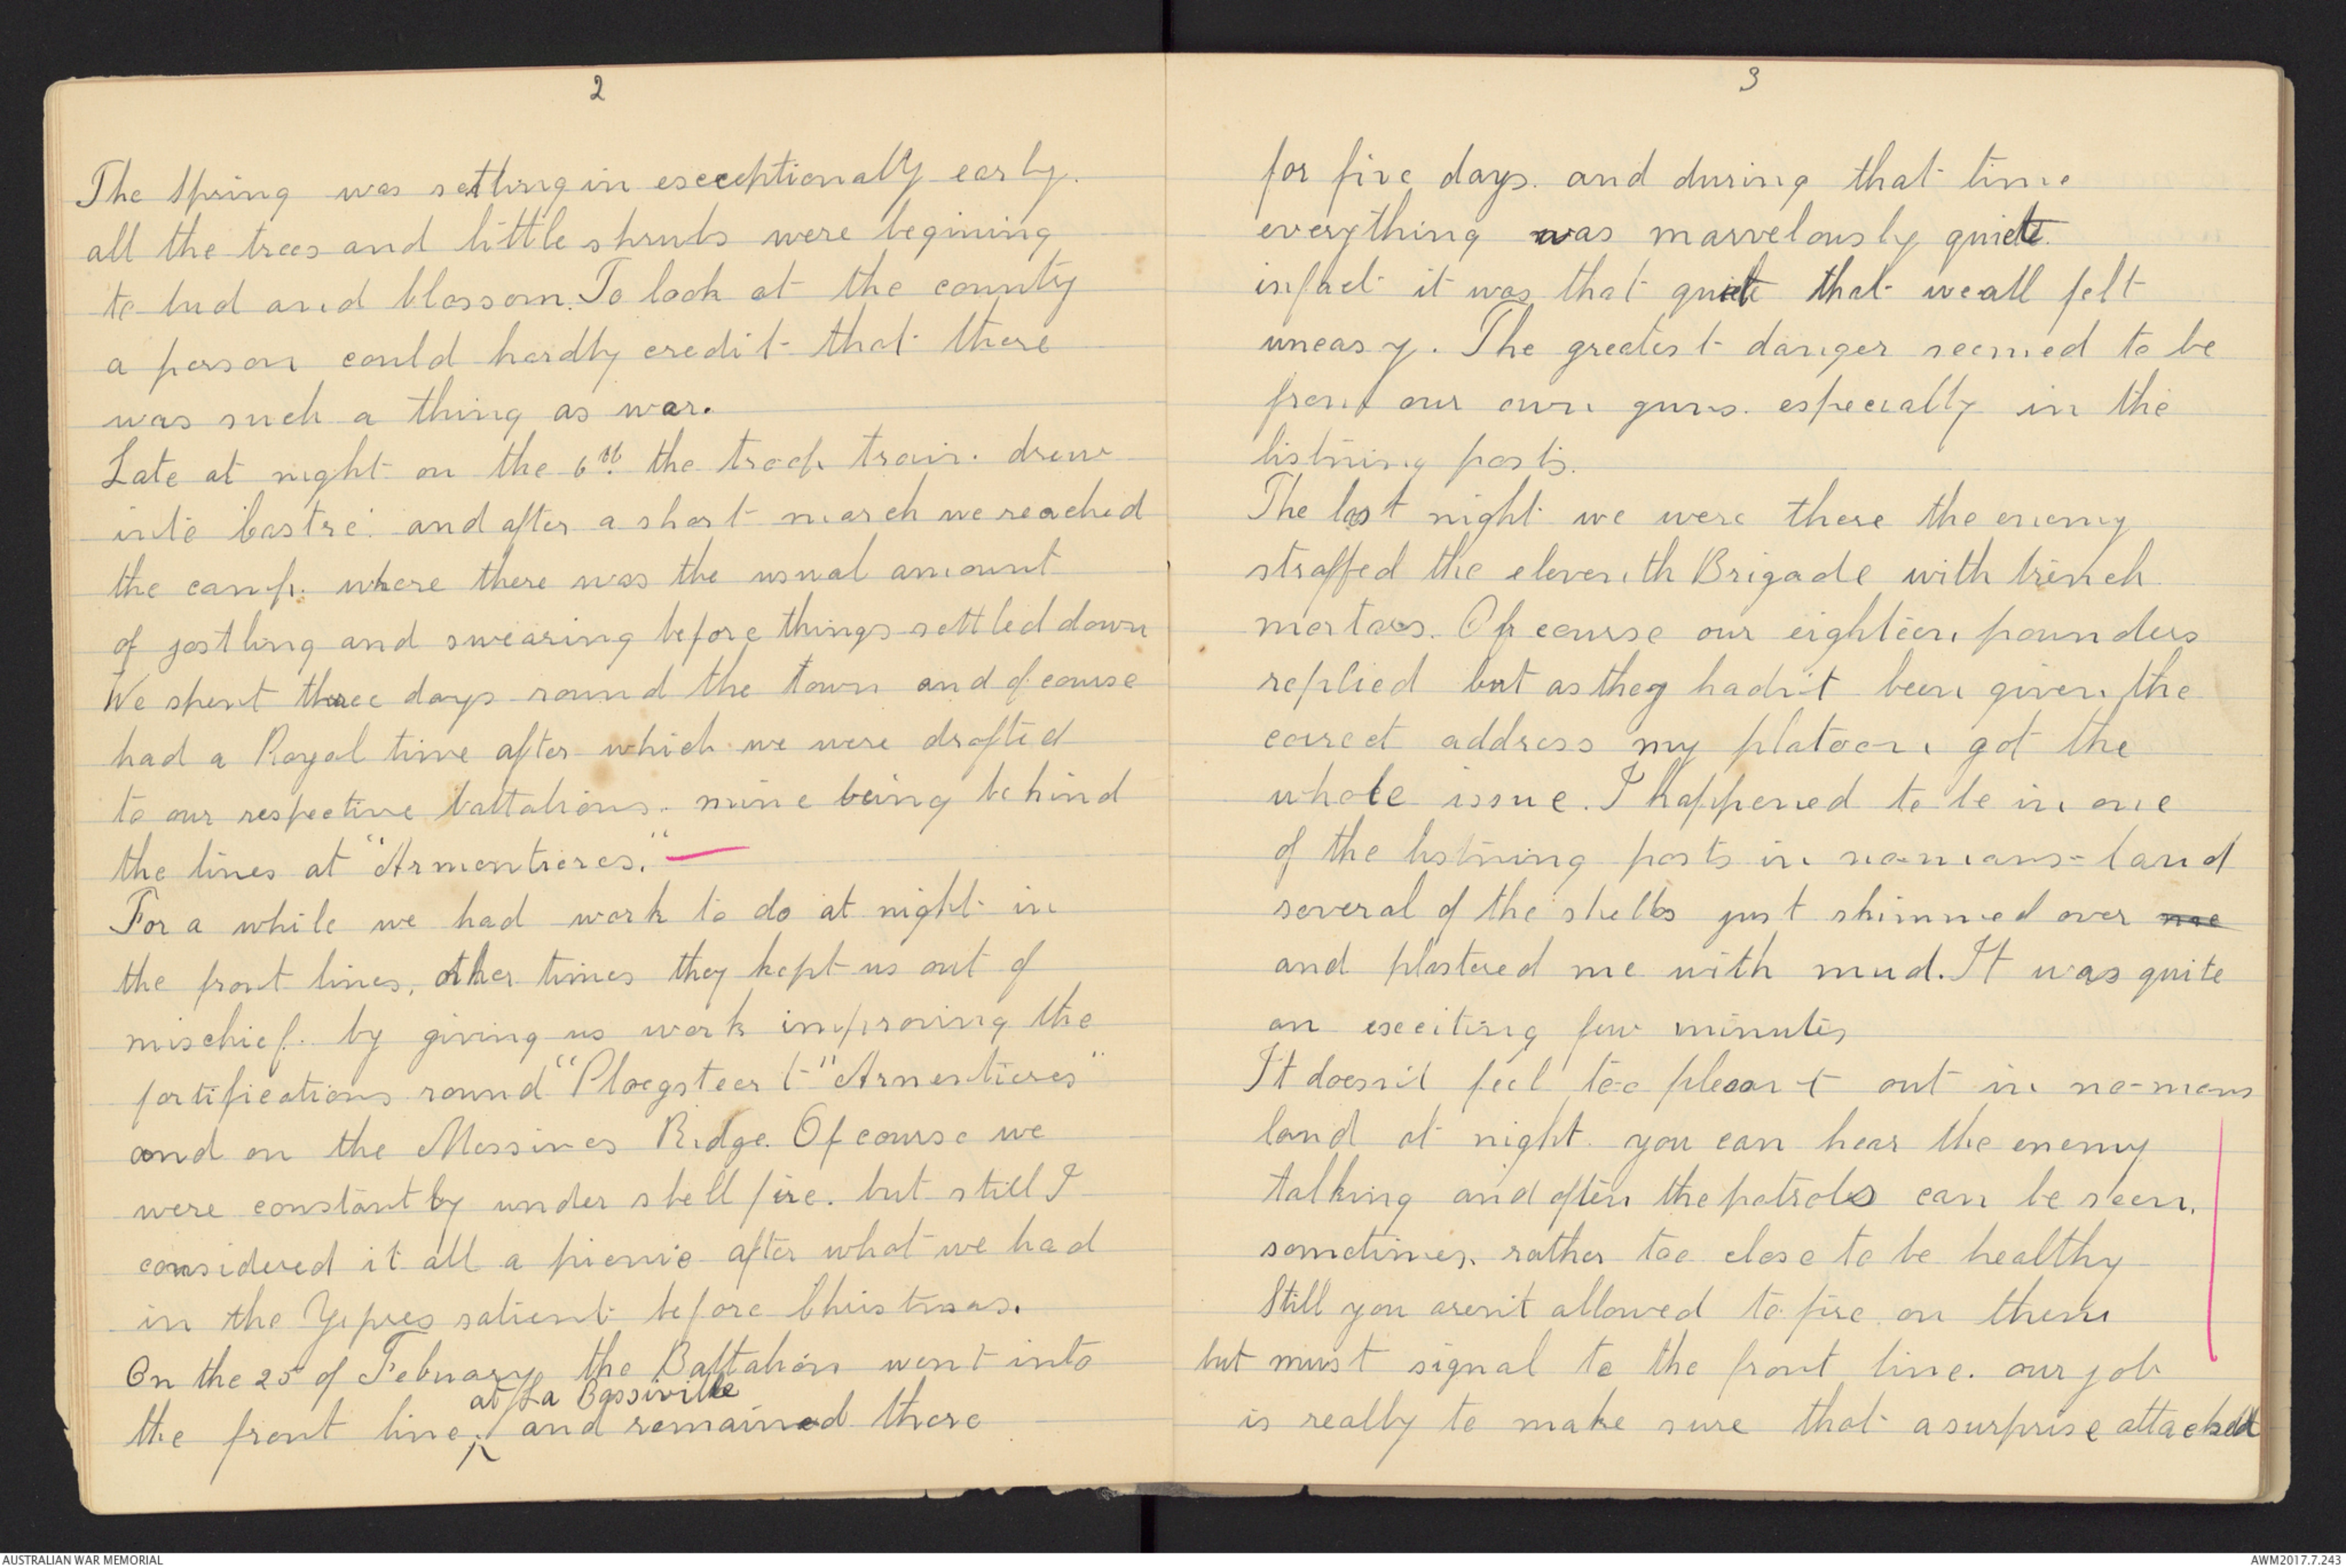 2
The Spring was setting in exceptionally early.
all the trees and little shrubs were begining
to bud and blossom. To look at the county
a person could hardly credit that there
was such a thing as war.
Late at night on the 6th. the troop train drew
into 'Castre' and after a short march we reached
the camp. where there was the usual amount
of jostling and swearing before things settled down
We spent three days round the town and of course
had a Royal time after which we were drafted
to our respective battalions. mine being behind
the lines at "Armentieres."
For a while we had work to do at night in
the front lines, other times they kept us out of
mischief. by giving us work improving the
fortifications round "Ploegsteert" "Armentieres"
and on the Messines Ridge. Of course we
were constantly under shell fire. but still I
considered it all a picnic after what we had
in the Yepres salient before Christmas.
On the 25 of Febuary the Battalion went into
at La Bassiville
the front line, and remained there
3
for five days. and during that time
everything was marvelously quiet.
infact it was that quiet that we all felt
uneasy. The greatest danger seemed to be
from our own guns. especially in the
listning posts.
The last night we were there the enemy
straffed the eleventh Brigade with trench
mortars. Of course our eighteen pounders
replied but as they hadn't been given the
correct address my platoon got the
whole issue. I happened to be in one
of the listning posts in no-mans-land
several of the shells just skimmed over me
and plastered me with mud. It was quite
an exciting few minutes
It doesn't feel too pleasant out in no-mans
land at night. you can hear the enemy
talking and often the patrols can be seen.
sometimes. rather too close to be healthy
Still you aren't allowed to fire on them
but must signal to the front line. our job
is really to make sure that a surprise attack
AUSTRALIAN WAR MEMORIAL
AWM2017.7.243